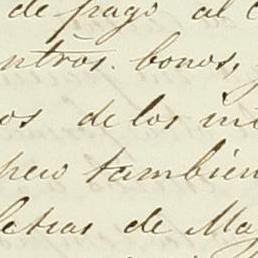 de pago al
ntros. bonos,
os de los in
pero también
letras de Ma